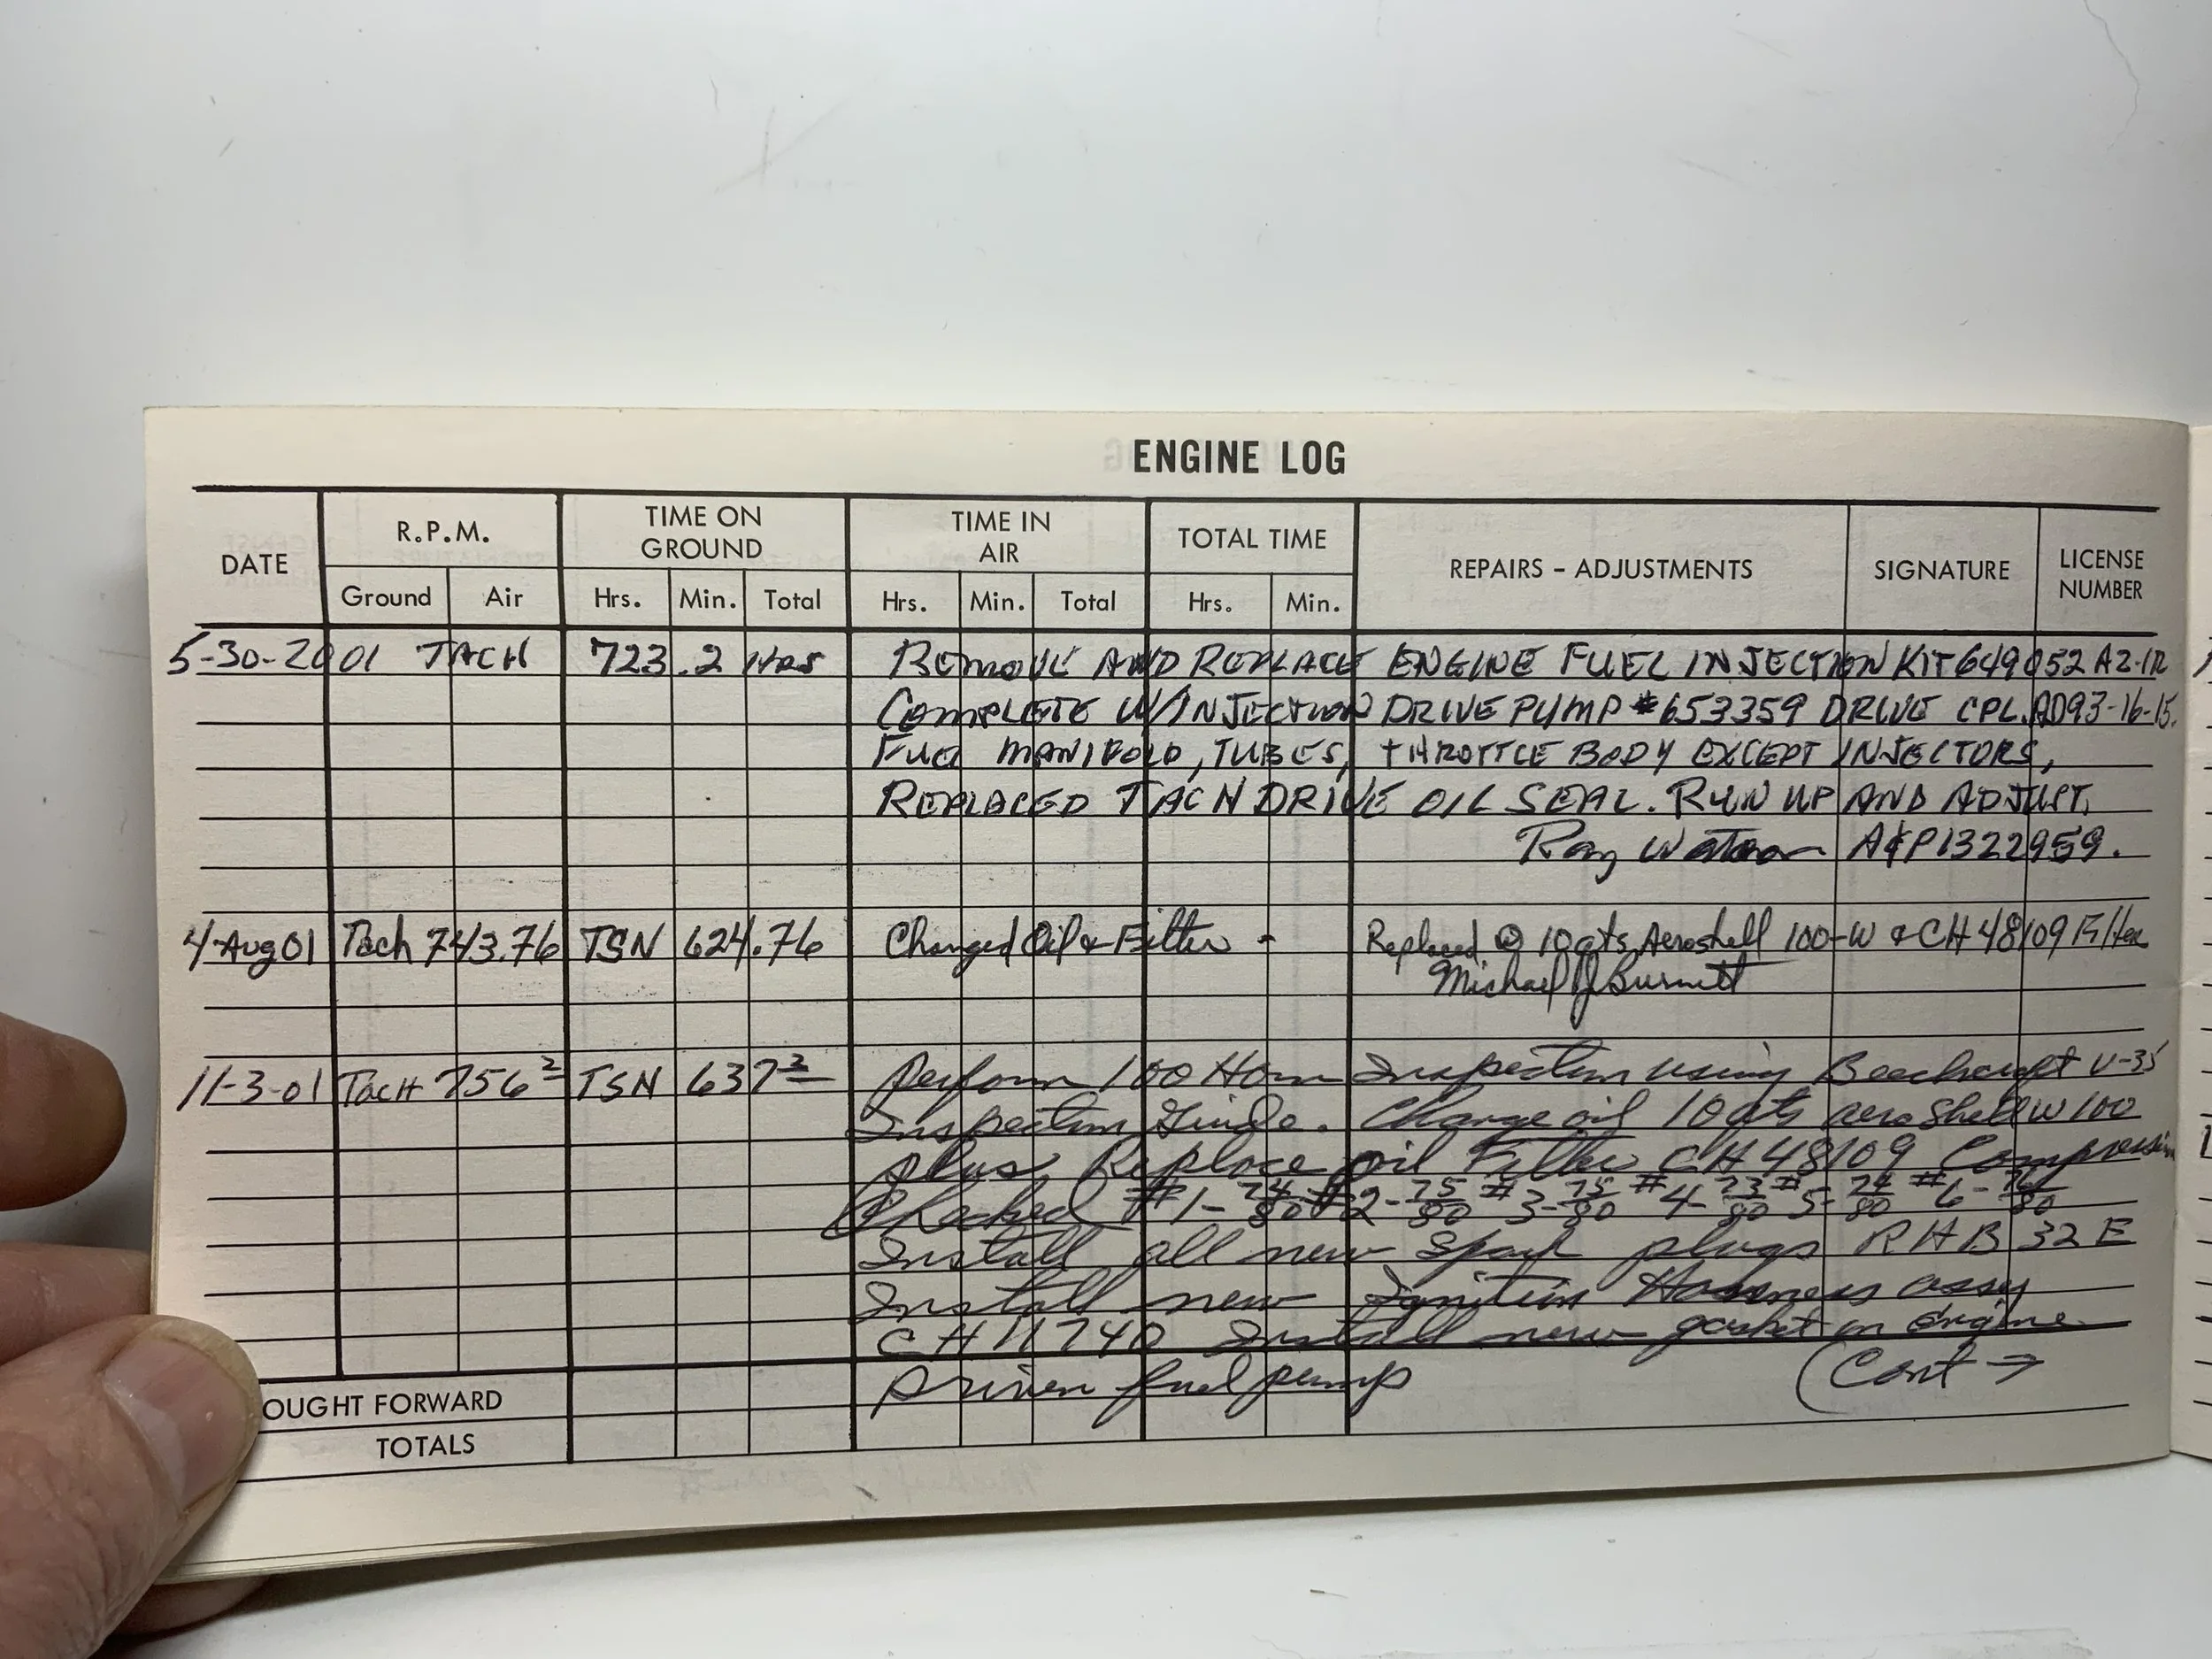 ENGINE LOG
DATE R.P.M. TIME ON GROUND TIME IN AIR TOTAL TIME REPAIRS - ADJUSTMENTS SIGNATURE LICENSE NUMBER
Ground Air Hrs. Min. Total Hrs. Min. Total Hrs. Min.
5-30-2001 TACH 723.2 Hrs REMOVE AND REPLACE ENGINE FUEL INJECTION KIT 649052 A2-1R
COMPLETE W/INJECTION DRIVE PUMP #653359 DRIVE CPL. AD93-16-15.
FUEL MANIFOLD, TUBES, THROTTLE BODY EXCEPT INJECTORS,
REPLACED TACH DRIVE OIL SEAL. RUN UP AND ADJUST.
Ray Watson A&P1322959.
4-Aug 01 Tach 743.76 TSN 624.76 Changed Oil & Filter - Replaced @ 10 qts Aeroshell 100-W & CH 48109 Filter
Michael J Burnett
11-3-01 TACH 756 2 TSN 637 2 Perform 100 Hour Inspection using Beechcraft V-35
Inspection Guide. Change oil 10 qts aeroshell W 100
plus Replace oil Filter CH 48109 Compression
Checked #1-74/80 #2-75/80 #3-75/80 #4-73/80 #5-74/80 #6-/80
Install all new spark plugs RHB 32 E
Install new Ignition Harness assy
CH 11740 Install new gasket on engine
Driven fuel pump (Cont →
OUGHT FORWARD
TOTALS